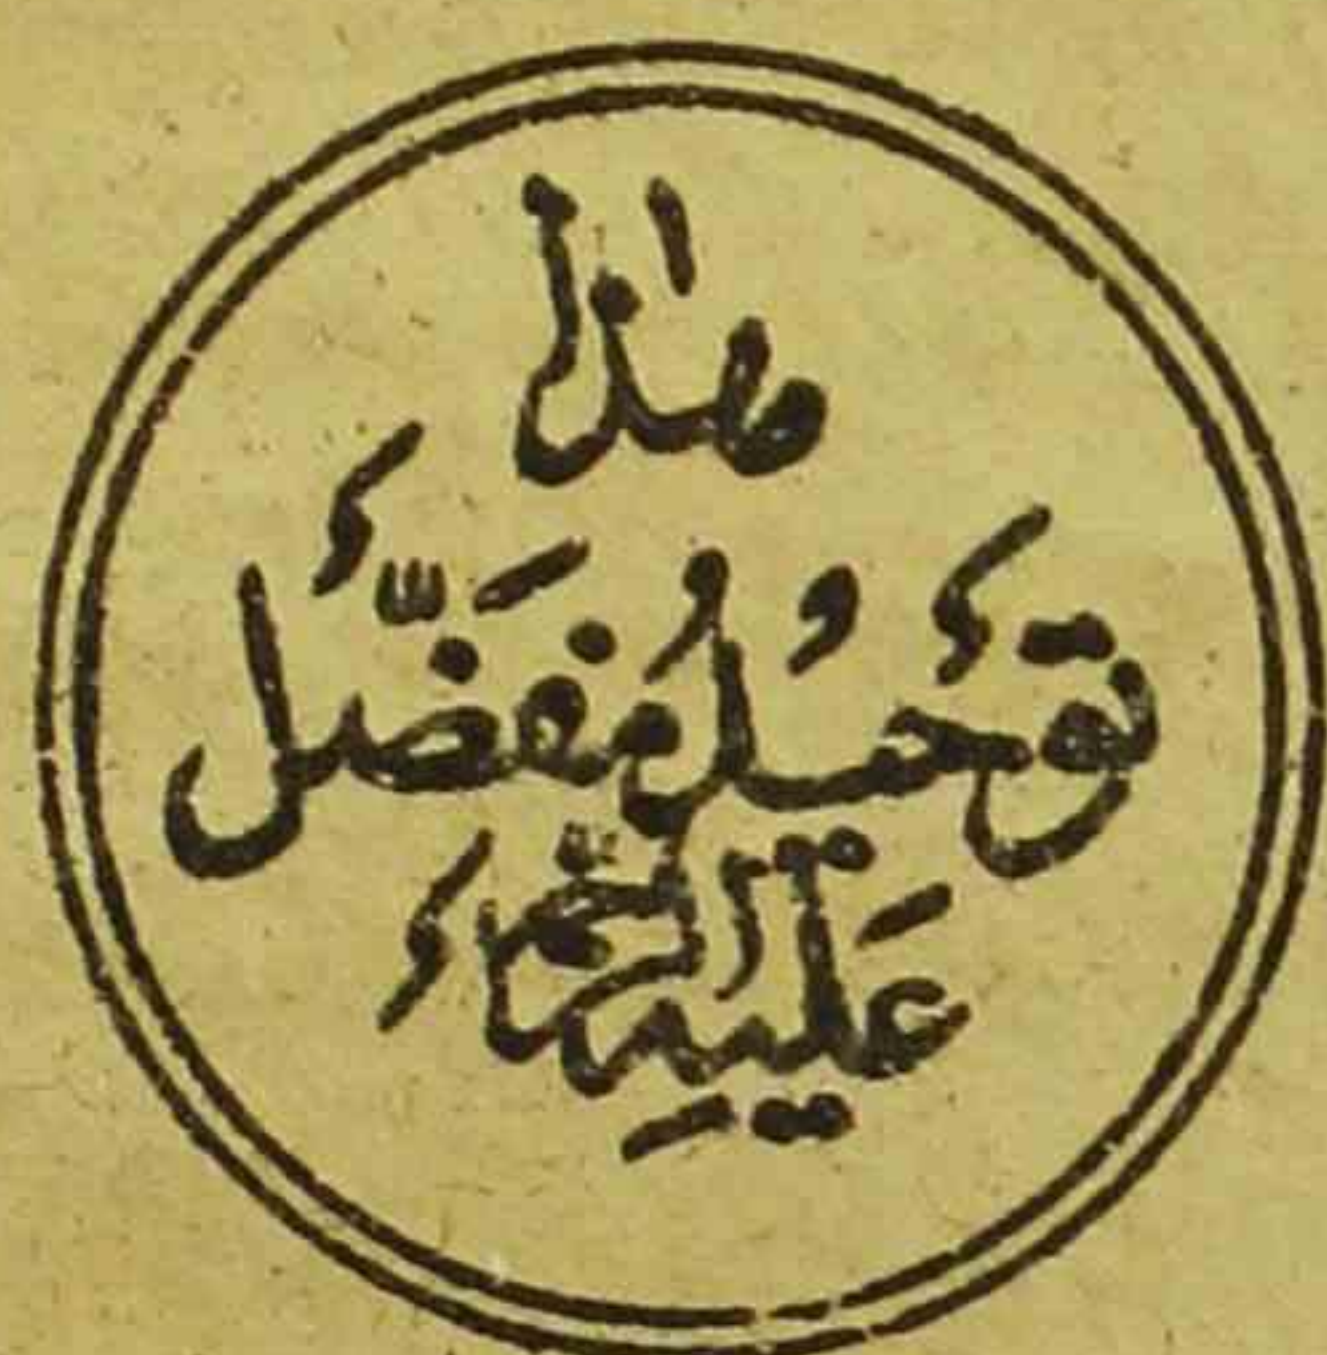 هٰذا
توحيدُ مُفَضَّل
عَلَيهِ الرحمة